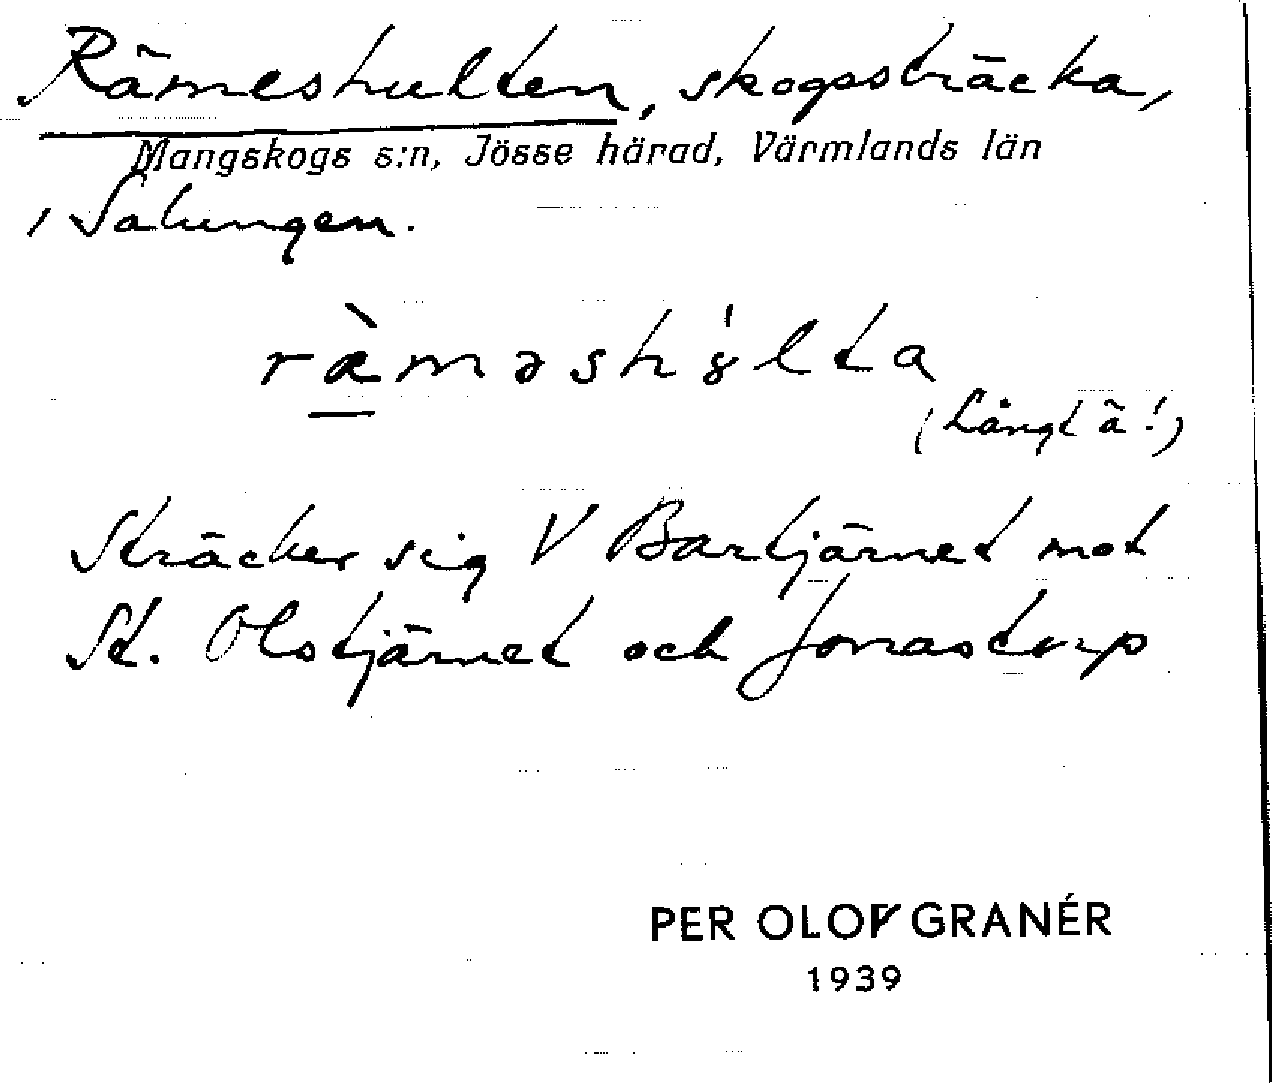 Rämeshulten, skogssträcka,
Mangskogs s:n, Jösse härad, Värmlands län
i Salungen.
ræ̀məshý̵lta
(Långt ä!)
Sträcker sig V Bartjärnet mot
St. Olstjärnet och Jonastorp
PER OLOV GRANÉR
1939